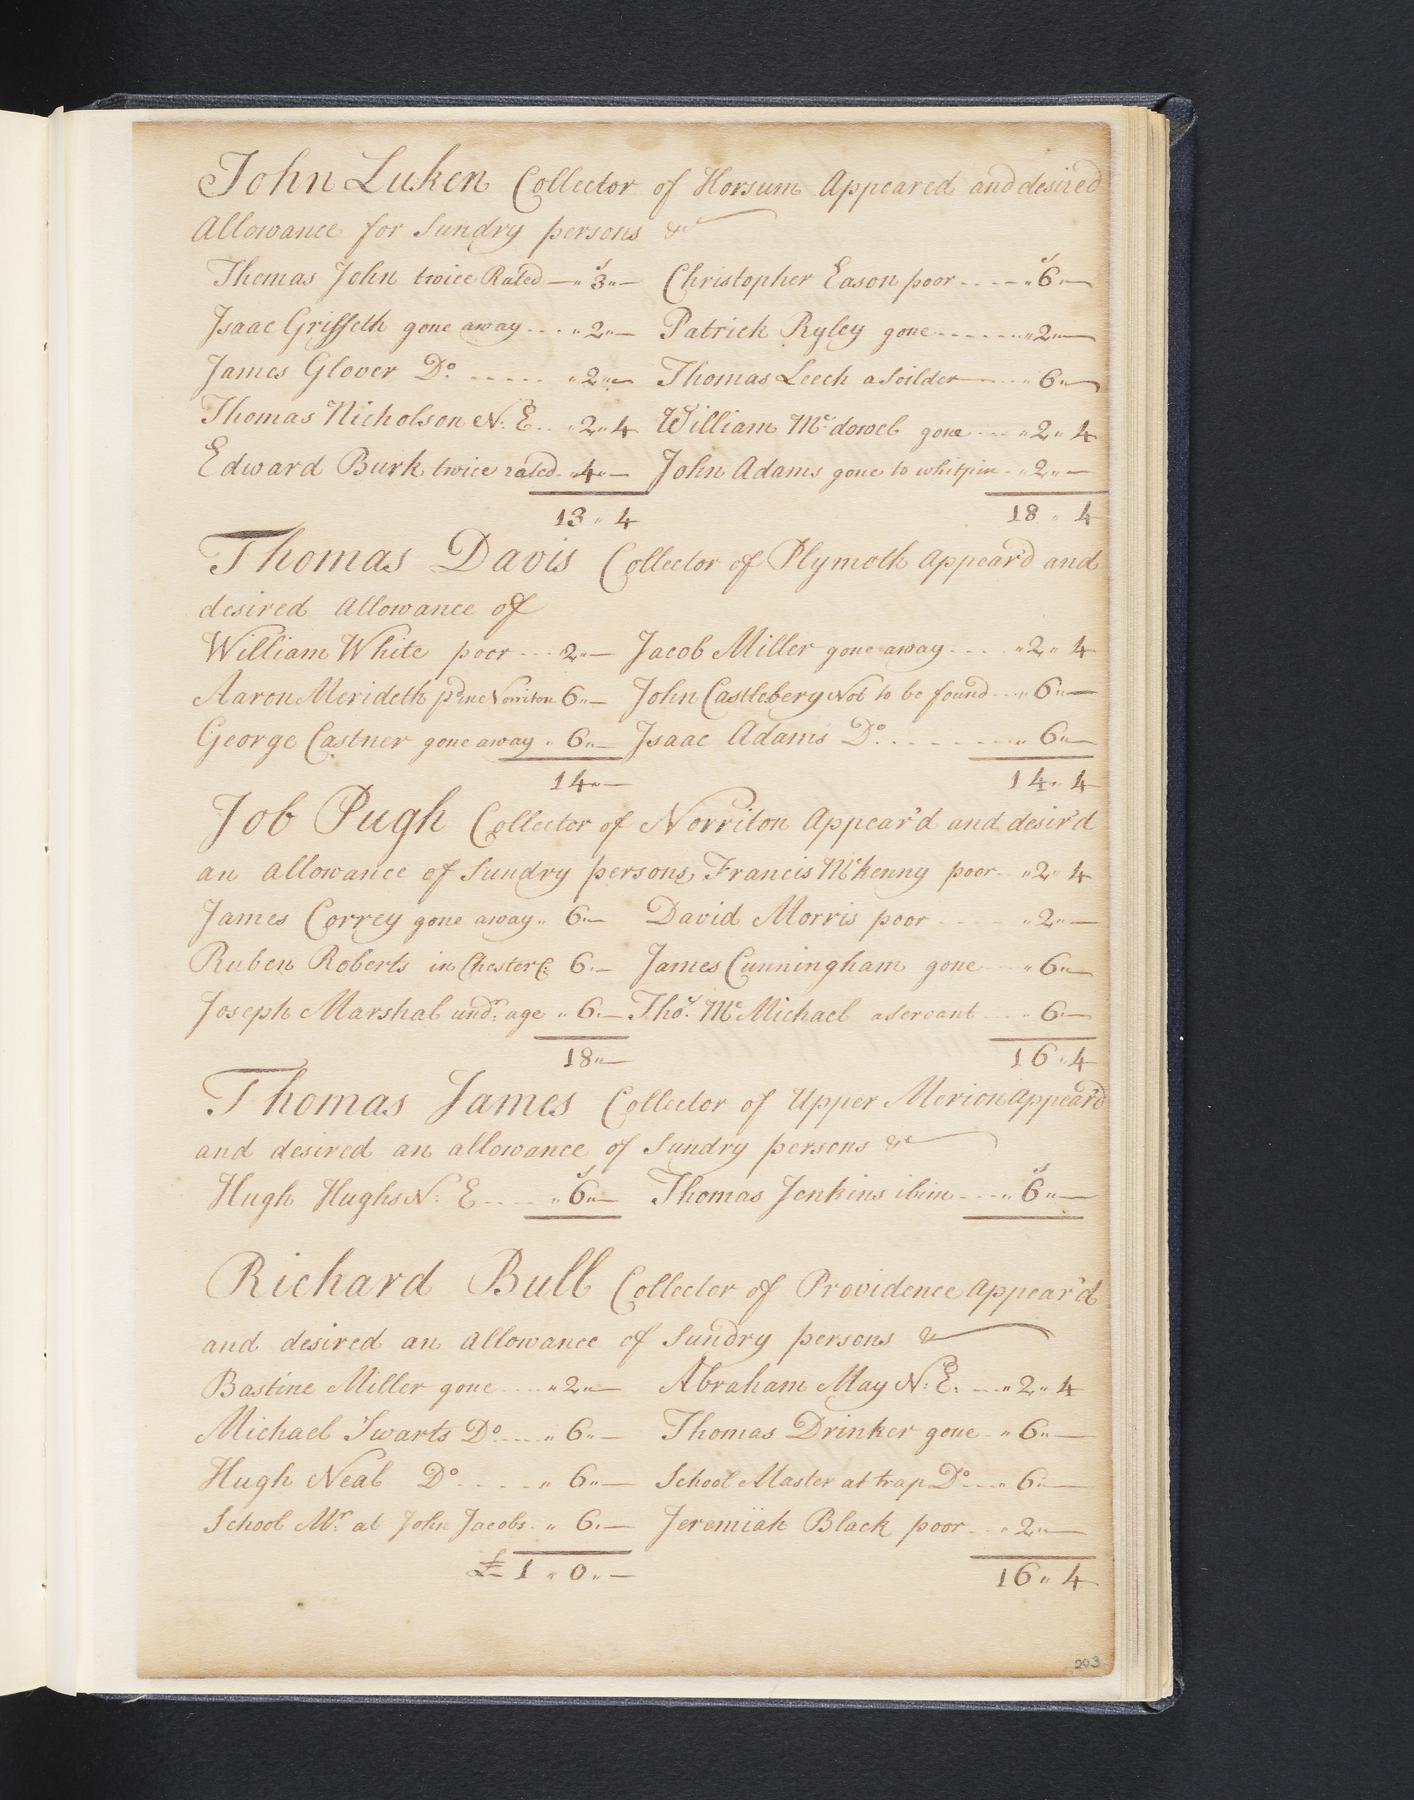 John Luken Collector of Horsum Appeared and desired
Allowance for Sundry persons &c
Thomas John twice Rated — „ 3 „ — Christopher Eason poor .... „ 6 „ —
Isaac Griffeth gone away .... „ 2 „ — Patrick Ryley gone ....... „ 2 „ —
James Glover Do. ..... „ 2 „ — Thomas Leech a Soilder .... „ 6 „ —
Thomas Nicholson N: E .. „ 2 „ 4 William Mc dowel gone ... „ 2 „ 4
Edward Burk twice rated „ 4 „ — John Adams gone to whitpin .. „ 2 „ —
13 „ 4 18 „ 4
Thomas Davis Collector of Plymoth Appear'd and
desired Allowance of
William White poor ... 2 „ — Jacob Miller gone away .... „ 2 „ 4
Aaron Merideth pd in Norriton 6 „ — John Castlebery Not to be found ... „ 6 „ —
George Castner gone away „ 6 „ — Isaac Adams Do. ........ „ 6 „ —
14 „ — 14 „ 4
Job Pugh Collector of Norriton Appear'd and desir'd
an allowance of Sundry persons, Francis Mckenny poor .. „ 2 „ 4
James Correy gone away „ 6 „ — David Morris poor ..... „ 2 „ —
Ruben Roberts in Chester C: 6 „ — James Cunningham gone ... „ 6 „ —
Joseph Marshal undr. age „ 6 „ — Thos. Mc Michael a Servant .... „ 6 —
18 „ — 16 „ 4
Thomas James Collector of Upper Merion appear'd
and desired an allowance of Sundry persons &c
Hugh Hughs N: E .... „ 6 „ — Thomas Jenkins ibim .... „ 6 „ —
Richard Bull Collector of Providence appear'd
and desired an Allowance of Sundry persons &
Bastine Miller gone .... „ 2 „ — Abraham May N: E. ... „ 2 „ 4
Michael Swarts Do .... „ 6 „ — Thomas Drinker gone .. „ 6 „ —
Hugh Neal Do ..... „ 6 „ — School Master at trap Do ... „ 6 „ —
School Mr. at John Jacobs .. „ 6 „ — Jeremiah Black poor .. „ 2 „ —
£ 1 „ 0 „ — 16 „ 4
203